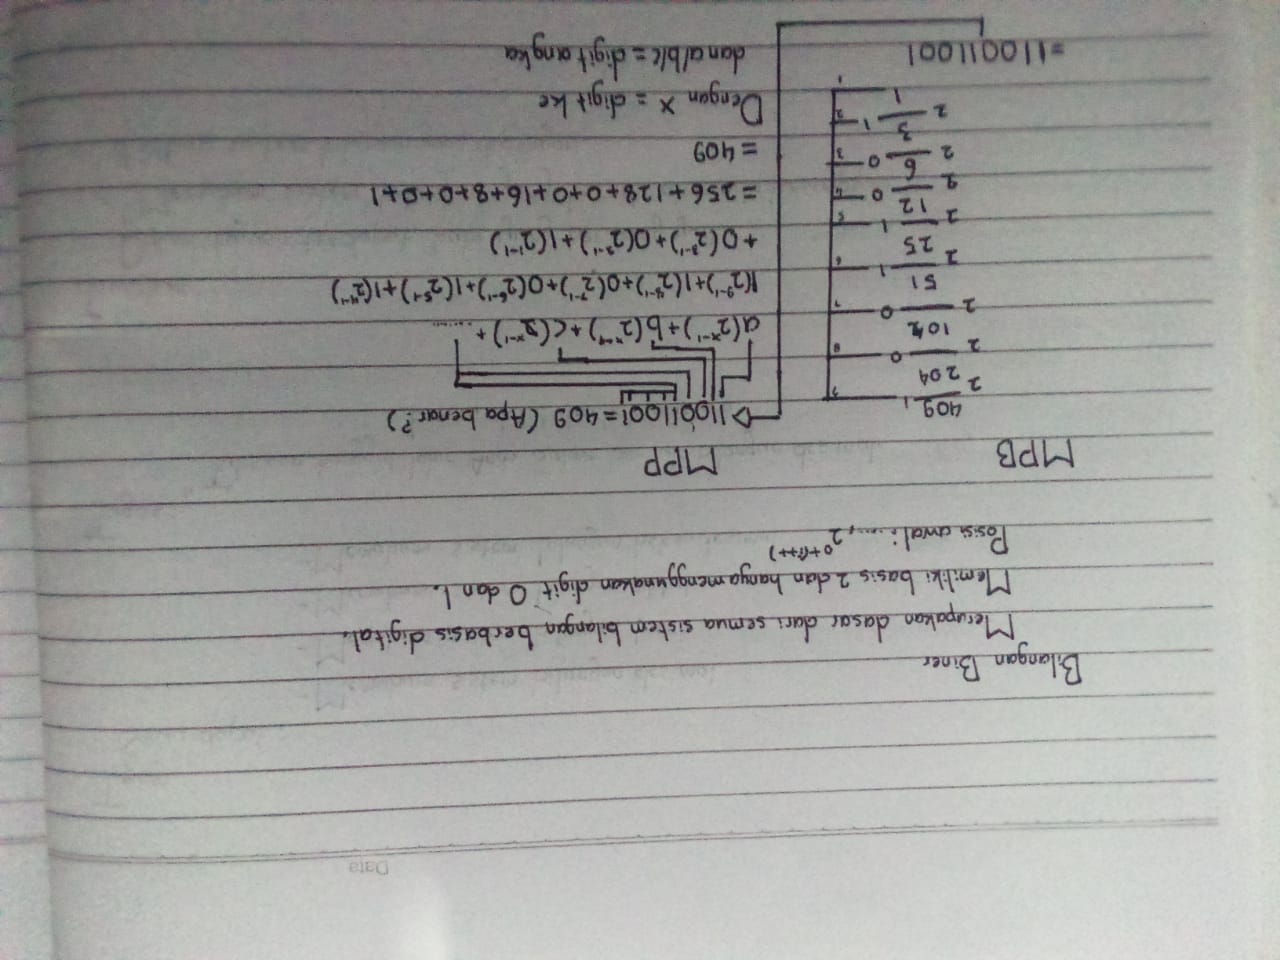 Date
Bilangan Biner
Merupakan dasar dari semua sistem bilangan berbasis digital.
Memiliki basis 2 dan hanya menggunakan digit 0 dan 1.
Posisi awal : ...., 2^0+(i++)
MPB
409 1
2
204
2 0
102
2 0
51
2 1
25
2 1
12
2 0
6
2 0
3
2 1
1
9
8
7
6
5
4
3
2
1
=110011001
MPP
110011001=409 (Apa benar?)
a(2^x-1)+b(2^x-1)+c(2^x-1)+.......
1(2^9-1)+1(2^8-1)+0(2^7-1)+0(2^6-1)+1(2^5-1)+1(2^4-1)
+0(2^3-1)+0(2^2-1)+1(2^1-1)
=256+128+0+0+16+8+0+0+1
=409
Dengan x = digit ke
dan a/b/c = digit angka